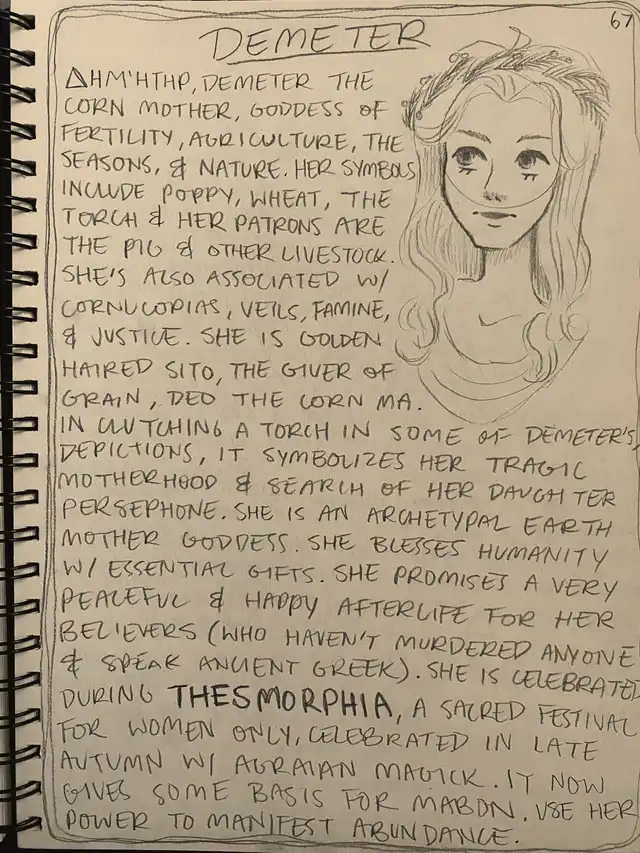 67
DEMETER
ΔHM'HTHP, DEMETER THE
CORN MOTHER, GODDESS OF
FERTILITY, AGRICULTURE, THE
SEASONS, & NATURE. HER SYMBOLS
INCLUDE POPPY, WHEAT, THE
TORCH & HER PATRONS ARE
THE PIG & OTHER LIVESTOCK.
SHE'S ALSO ASSOCIATED W/
CORNUCOPIAS, VEILS, FAMINE,
& JUSTICE. SHE IS GOLDEN
HAIRED SITO, THE GIVER OF
GRAIN, DEO THE CORN MA.
IN CLUTCHING A TORCH IN SOME OF DEMETER'S,
DEPICTIONS, IT SYMBOLIZES HER TRAGIC
MOTHERHOOD & SEARCH OF HER DAUGHTER
PERSEPHONE. SHE IS AN ARCHETYPAL EARTH
MOTHER GODDESS. SHE BLESSES HUMANITY
W/ ESSENTIAL GIFTS. SHE PROMISES A VERY
PEACEFUL & HAPPY AFTERLIFE FOR HER
BELIEVERS (WHO HAVEN'T MURDERED ANYONE
& SPEAK ANCIENT GREEK). SHE IS CELEBRATED
DURING THESMORPHIA, A SACRED FESTIVAL
FOR WOMEN ONLY, CELEBRATED IN LATE
AUTUMN W/ AGRAIAN MAGICK. IT NOW
GIVES SOME BASIS FOR MABON. USE HER
POWER TO MANIFEST ABUNDANCE.